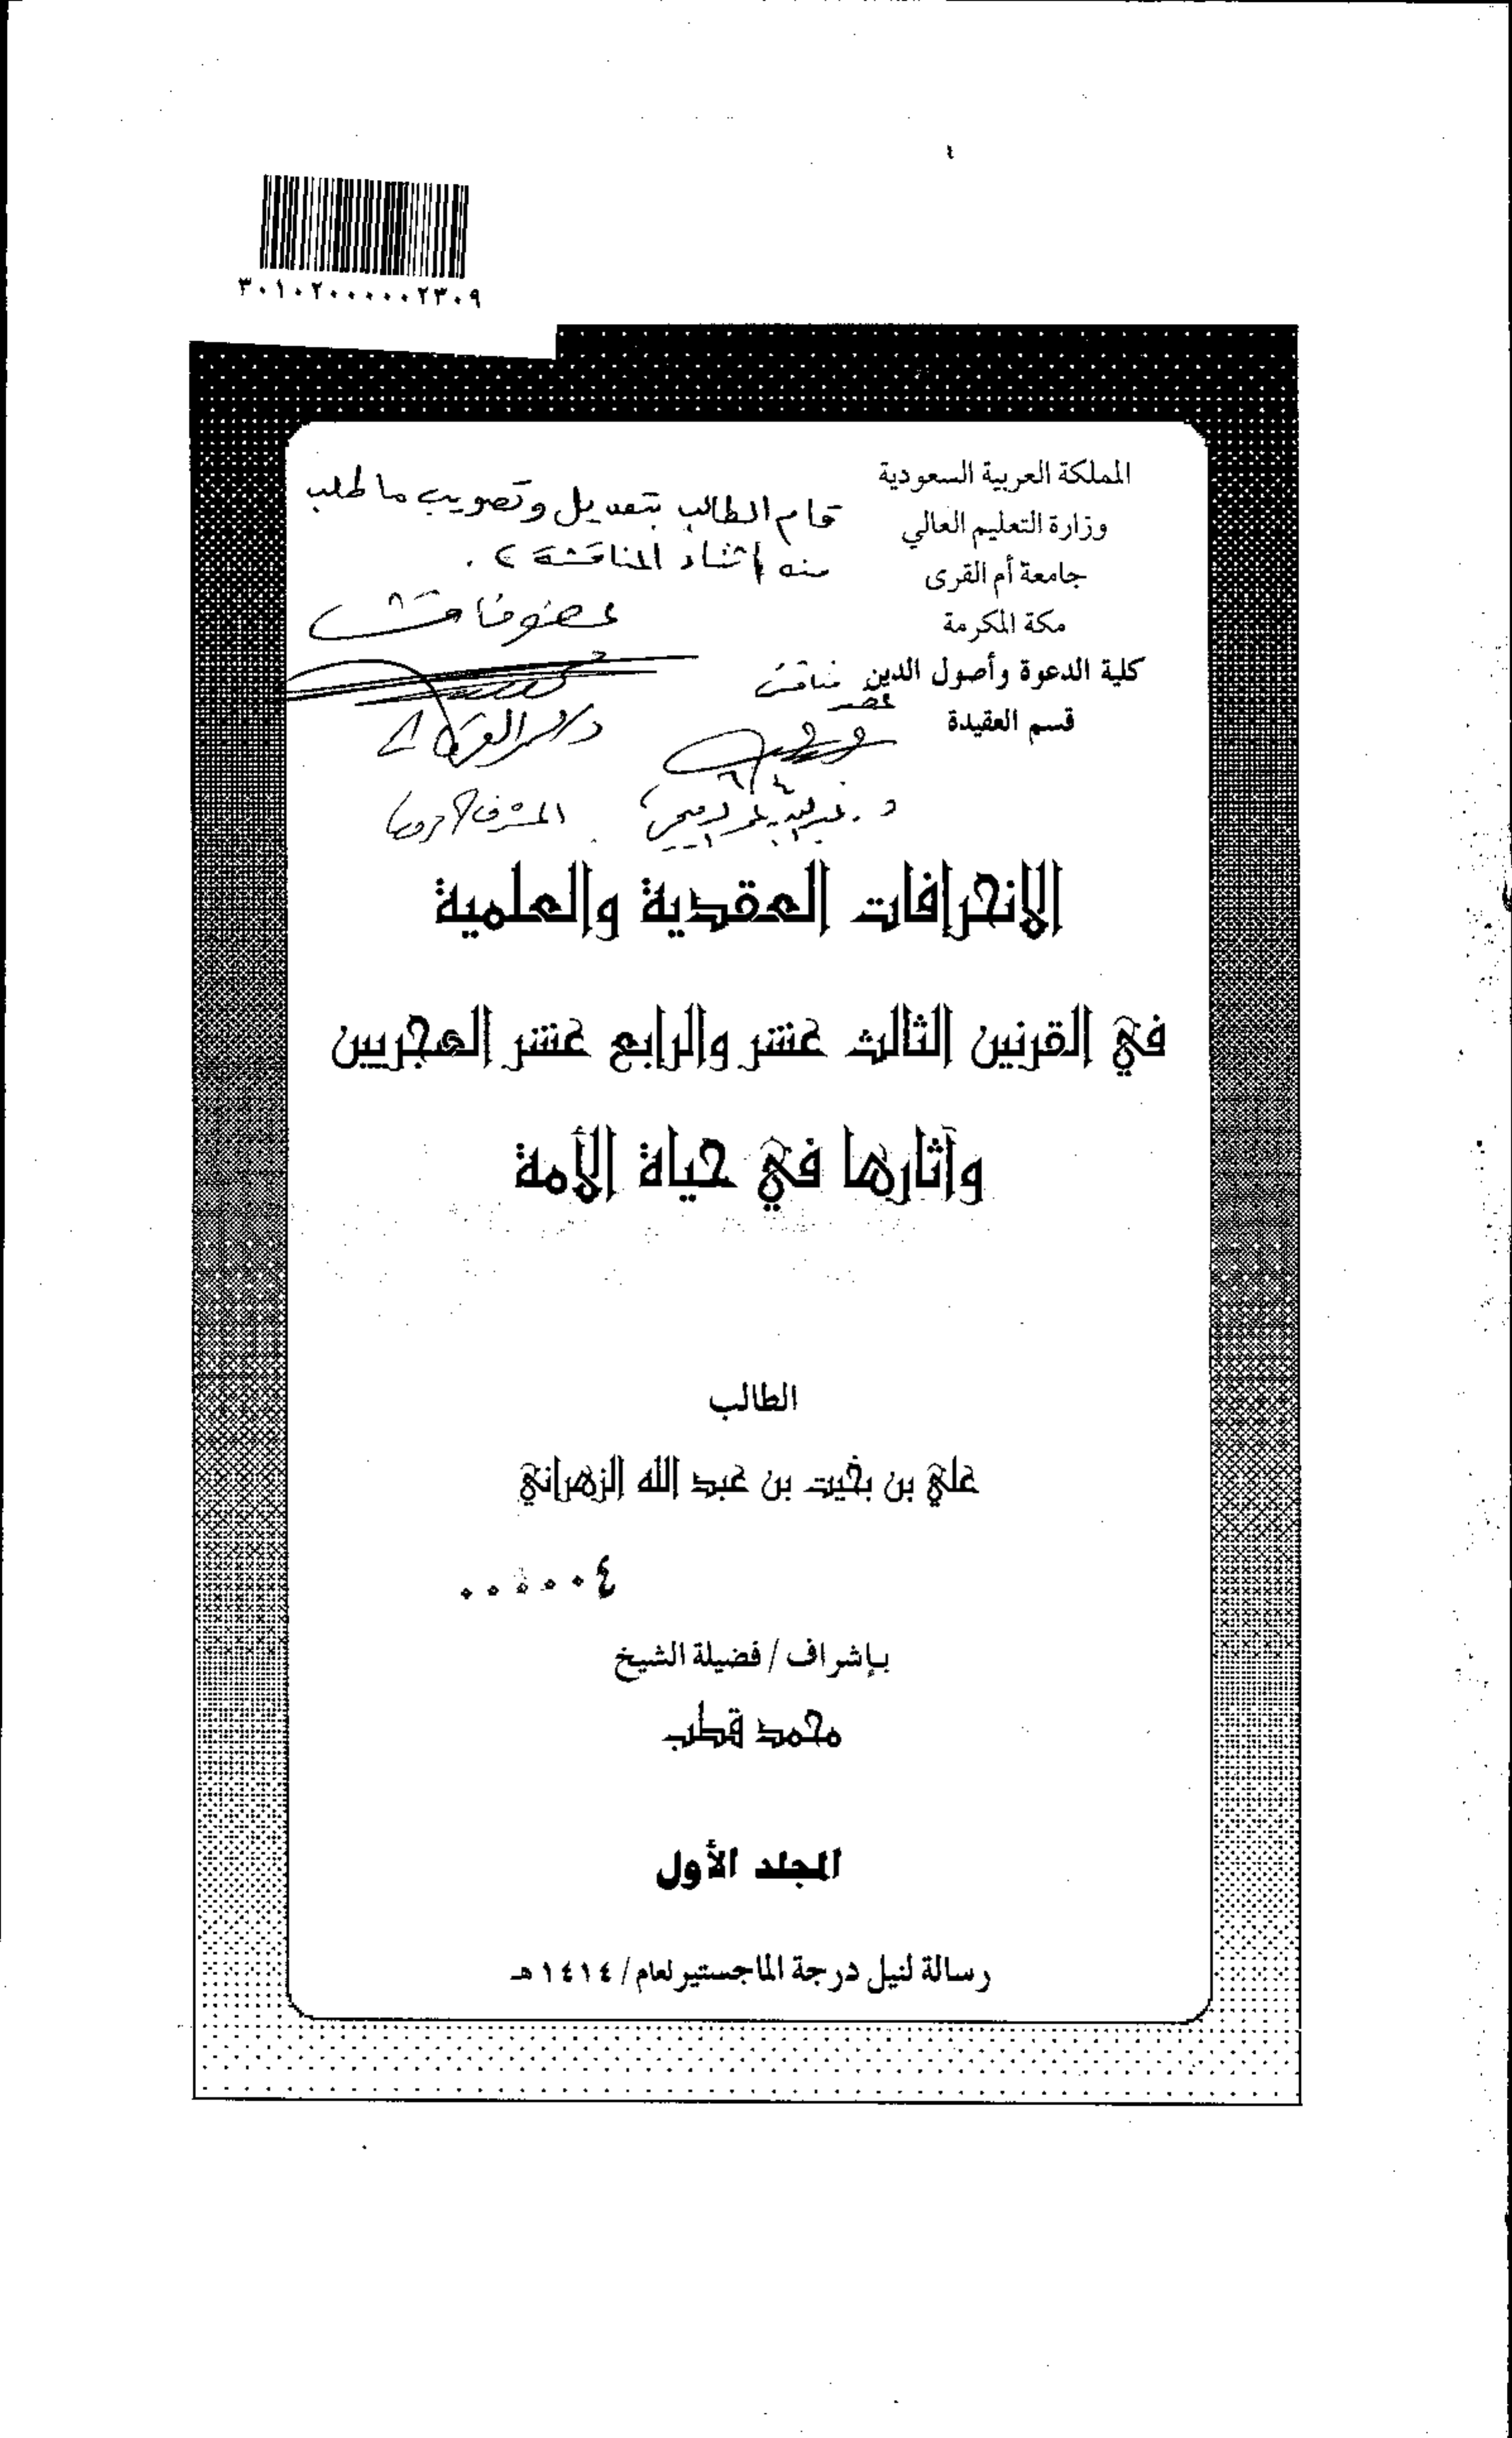 ٣٠١٠٢٠٠٠٠٠٢٣٠٩
المملكة العربية السعودية
وزارة التعليم العالي
جامعة أم القرى
مكة المكرمة
كلية الدعوة وأصول الدين
قسم العقيدة
قام الطالب بتعديل وتصويب ما طلب
منه أثناء المناقشة
عضو مناقش
مناقش
عضو
د.
المشرف
الانحرافات العقدية والعلمية
في القرنين الثالث عشر والرابع عشر الهجريين
وآثارها في حياة الأمة
الطالب
علي بن بخيت بن عبد الله الزهراني
٠٠٠٠٠٤
بإشراف / فضيلة الشيخ
محمد قطب
المجلد الأول
رسالة لنيل درجة الماجستير لعام / ١٤١٤ هـ